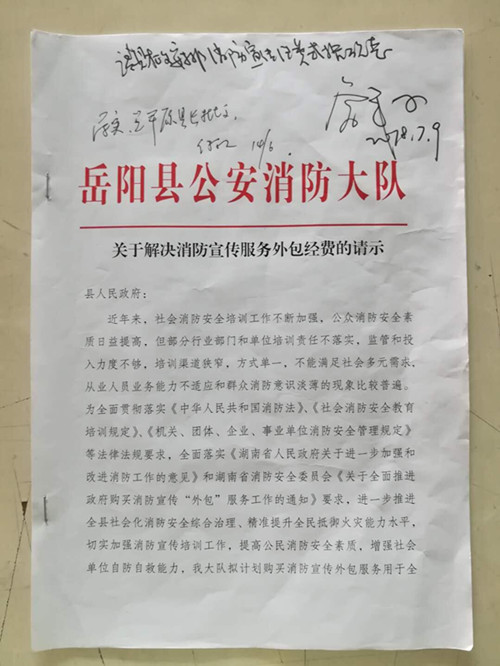 2018.7.9
岳阳县公安消防大队
关于解决消防宣传服务外包经费的请示
县人民政府：
近年来，社会消防安全培训工作不断加强，公众消防安全素
质日益提高，但部分行业部门和单位培训责任不落实，监管和投
入力度不够，培训渠道狭窄，方式单一，不能满足社会多元需求，
从业人员业务能力不适应和群众消防意识淡薄的现象比较普遍。
为全面贯彻落实《中华人民共和国消防法》、《社会消防安全教育
培训规定》、《机关、团体、企业、事业单位消防安全管理规定》
等法律法规要求，全面落实《湖南省人民政府关于进一步加强和
改进消防工作的意见》和湖南省消防安全委员会《关于全面推进
政府购买消防宣传“外包”服务工作的通知》要求，进一步推进
全县社会化消防安全综合治理、精准提升全民抵御火灾能力水平，
切实加强消防宣传培训工作，提高公民消防安全素质，增强社会
单位自防自救能力，我大队拟计划购买消防宣传外包服务用于全